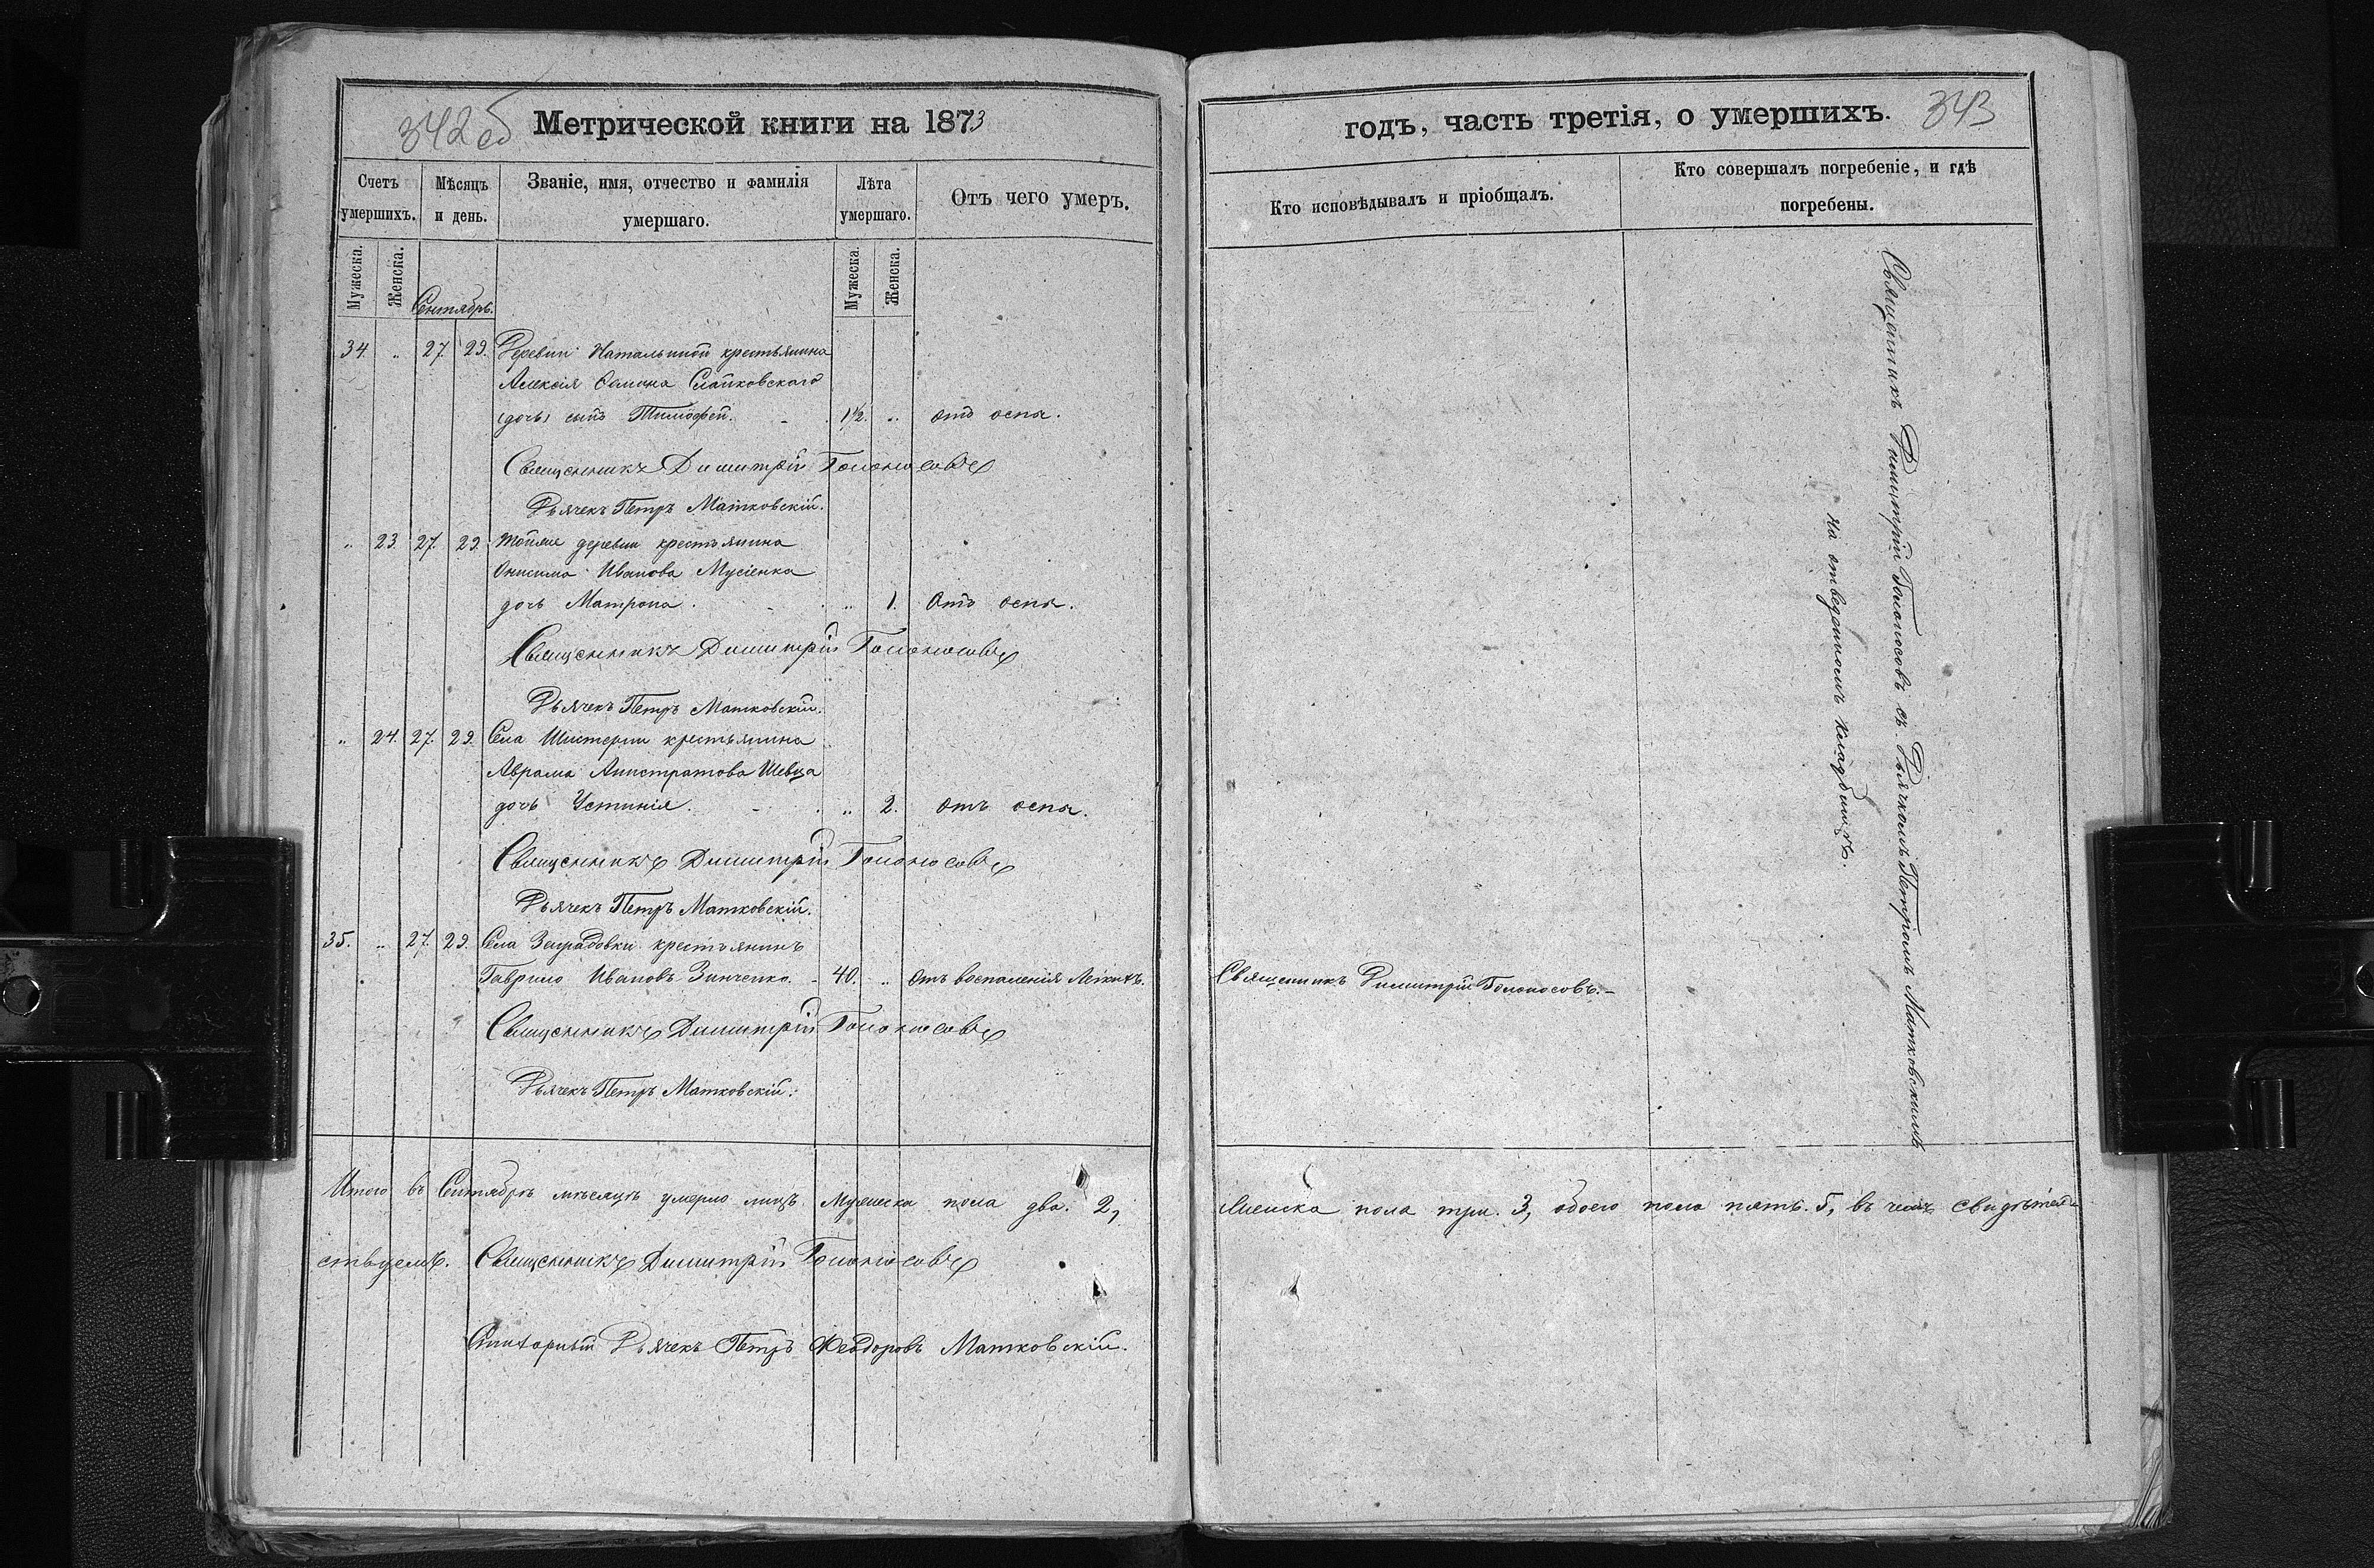 342 об
Метрической книги на 1873
Счетъ умершихъ.
Мѣсяцъ и день.
Званіе, имя, отчество и фамилія умершаго.
Лѣта умершаго.
Отъ чего умеръ.
Мужеска.
Женска.
Сентябрь.
Мужеска.
Женска.
34. „ 27. 29. Деревни Натальиной крестьянина
Алексія
(дочь) сынъ Тимофей. - 1½. „ отъ оспы.
Священникъ Димитрій Голоносовъ
Дьячекъ Петръ Матковскій.
„ 23. 27. 29. Тойже деревни крестьянина
Онисима Иванова Мусіенка
дочь Матрона. - „ 1. Отъ оспы.
Священникъ Димитрій Голоносовъ
Дьячекъ Петръ Матковскій.
„ 24. 27. 29. Села Шестерни крестьянина
Аврама Анистратова Шевца
дочь Устинія. - „ 2. отъ оспы.
Священникъ Димитрій Голоносовъ
Дьячекъ Петръ Матковскій.
35. „ 27. 29. Села Заградовки крестьянинъ
Гаврило Ивановъ Зинченко. - 40. „ Отъ воспаленія легкихъ.
Священникъ Димитрій Голоносовъ
Дьячекъ Петръ Матковскій.
Итого въ Сентябрѣ мѣсяцѣ умерло лицъ Мужеска пола два. 2,
ствуемъ. Священникъ Димитрій Голоносовъ
Дьячекъ Петръ Феодоровъ Матковскій.
годъ, часть третія, о умершихъ.
343
Кто исповѣдывалъ и пріобщалъ.
Кто совершалъ погребеніе, и гдѣ погребены.
Священникъ Димитрій Голоносовъ съ Дьячкомъ Петромъ Матковскимъ
на отведенномъ кладбищѣ.
Священникъ Димитрій Голоносовъ.-
женска пола три. 3, обоего пола пять. 5, въ чемъ свидѣтель-